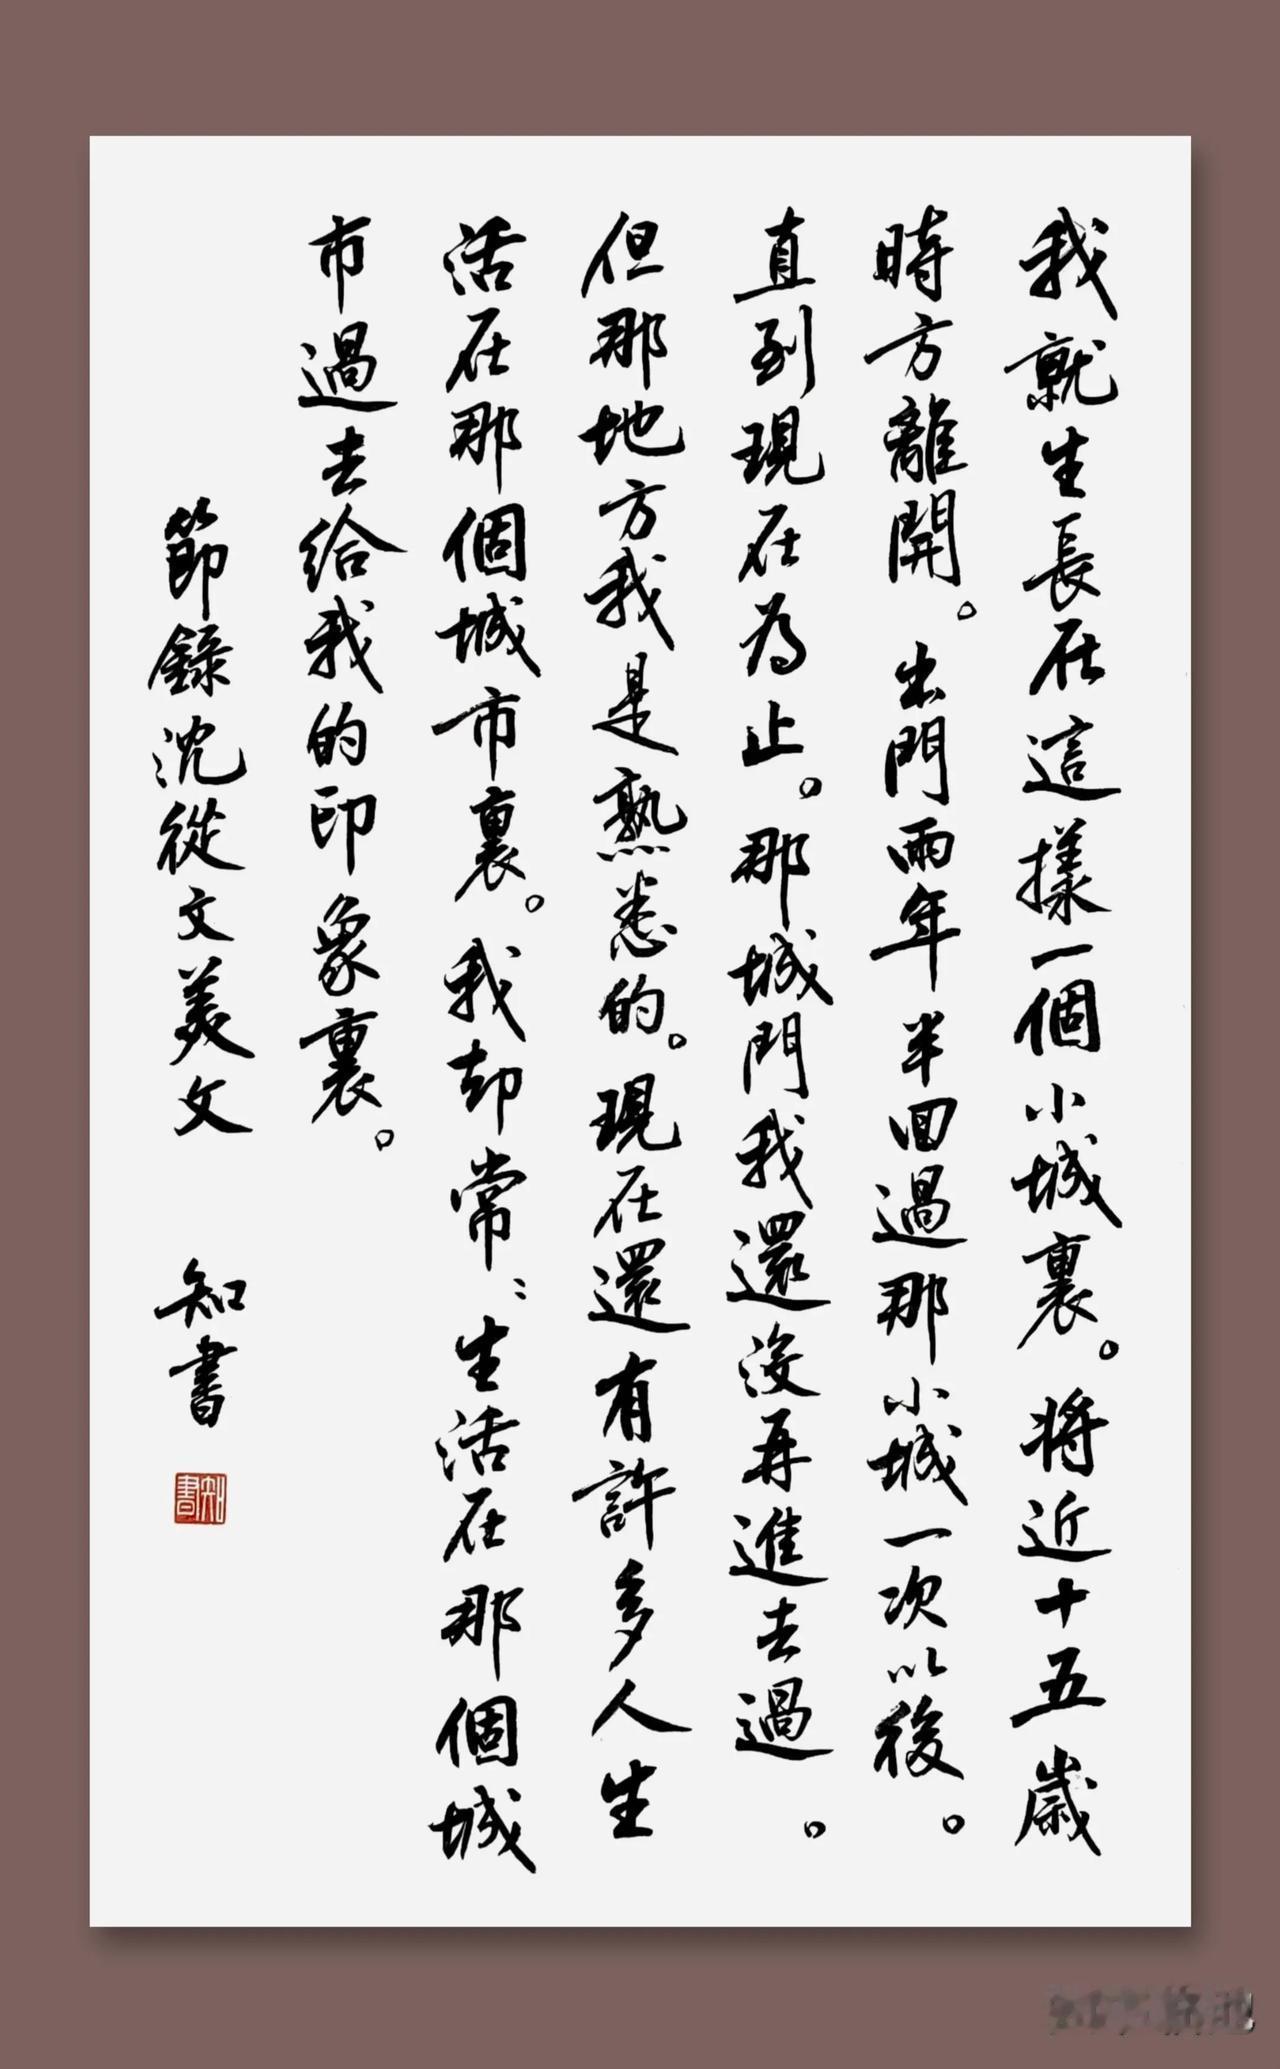 我就生長在這樣一個小城裏。将近十五歲
時方離開。出門兩年半回過那小城一次以後。
直到現在為止。那城門我還沒再進去過。
但那地方我是熟悉的。現在還有許多人生
活在那個城市裏。我却常〻生活在那個城
市過去給我的印象裏。
節錄沈從文美文 知書
知書